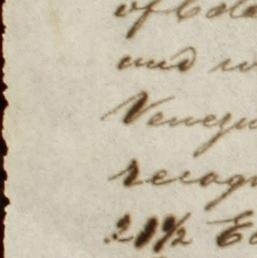 of Colo
and w
Venezu
recogn
21½ Ea